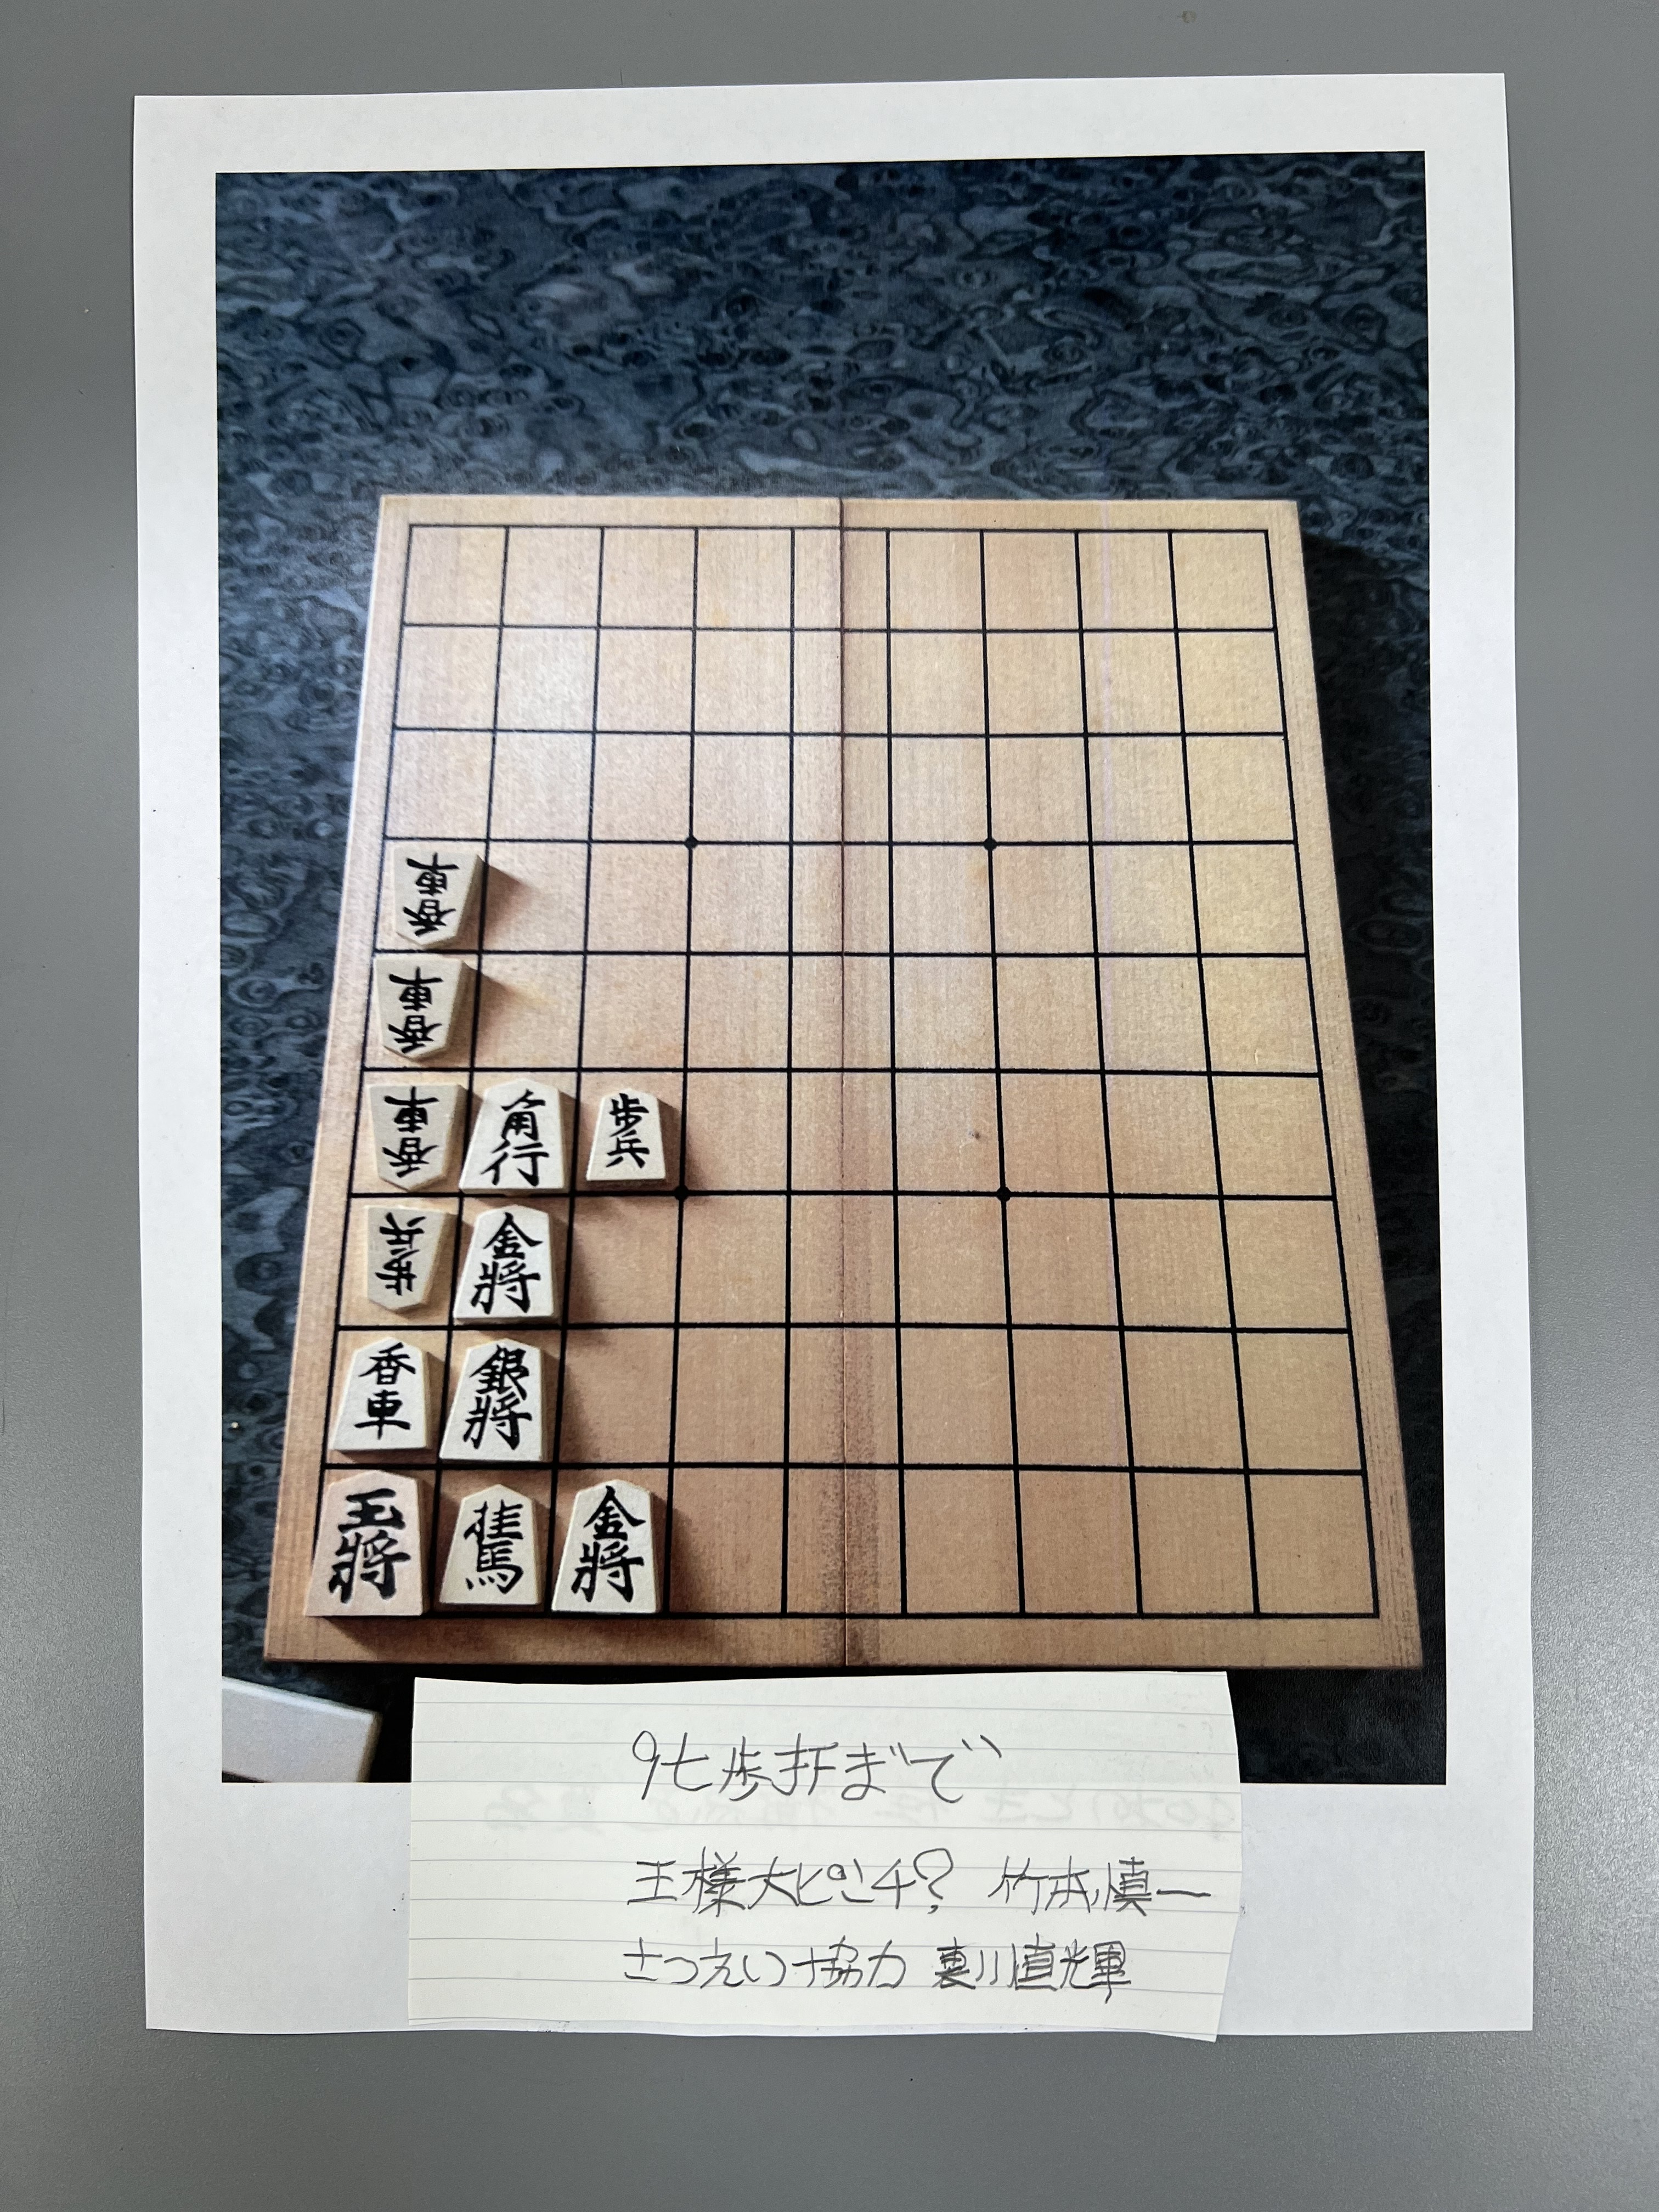 香車
香車
香車 角行 歩兵
歩兵 金将
香車 銀将
王将 桂馬 金将
9七歩打まで
王様大ピンチ? 竹本慎一
さつえい協力 裏川直輝